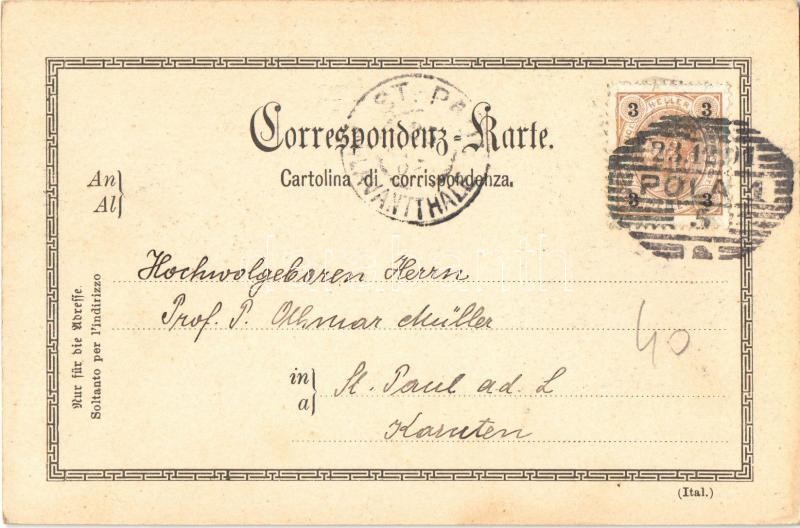 Correspondenz-Karte.
Cartolina di corrispondenza.
ST. PAUL
LAVANTTHALE
3 HELLER 3
3 3
23.1
POLA
5
An
Al
Hochwolgeboren Herrn
Prof. P. Othmar Müller
in
a
St. Paul a.d. L
Karnten
40
Nur für die Adresse.
Soltanto per l'indirizzo
(Ital.)